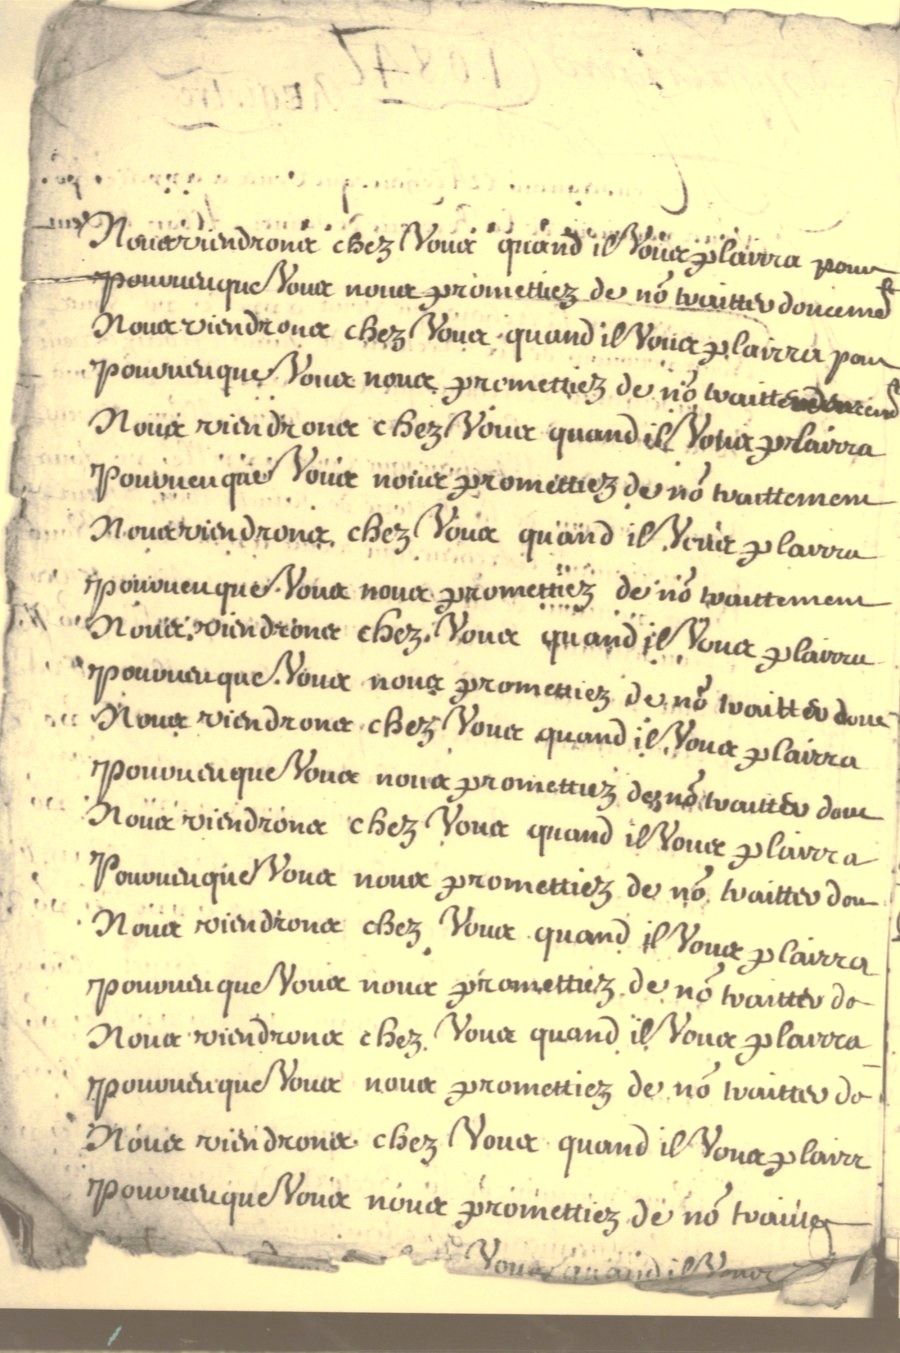 Nous viendrons chez Vous quand il Vous plairra pour
pourueu que Vous nous promettiez de no͡ traitter doucem͡t
Nous viendrons chez Vous quand il Vous plairra pour
pourueu que Vous nous promettiez de no͡ traitter
Nous viendrons chez Vous quand il Vous plairra
Pourueu que Vous nous promettiez de no͡ traittement
Nous viendrons chez Vous quand il Vous plairra
pourueu que Vous nous promettiez de no͡ traittement
Nous viendrons chez Vous quand il Vous plairra
pourueu que Vous nous promettiez de no͡ traitter douc
Nous viendrons chez Vous quand il Vous plairra
pourueu que Vous nous promettiez de no͡ traitter douc
Nous viendrons chez Vous quand il Vous plairra
Pourueu que Vous nous promettiez de no͡ traitter dou
Nous viendrons chez Vous quand il Vous plairra
pourueu que Vous nous promettiez de no͡ traitter do
Nous viendrons chez Vous quand il Vous plairra
pourueu que Vous nous promettiez de no͡ traitter do
Nous viendrons chez Vous quand il Vous plairr
pourueu que Vous nous promettiez de no͡ traitter
Vous quand il Vous